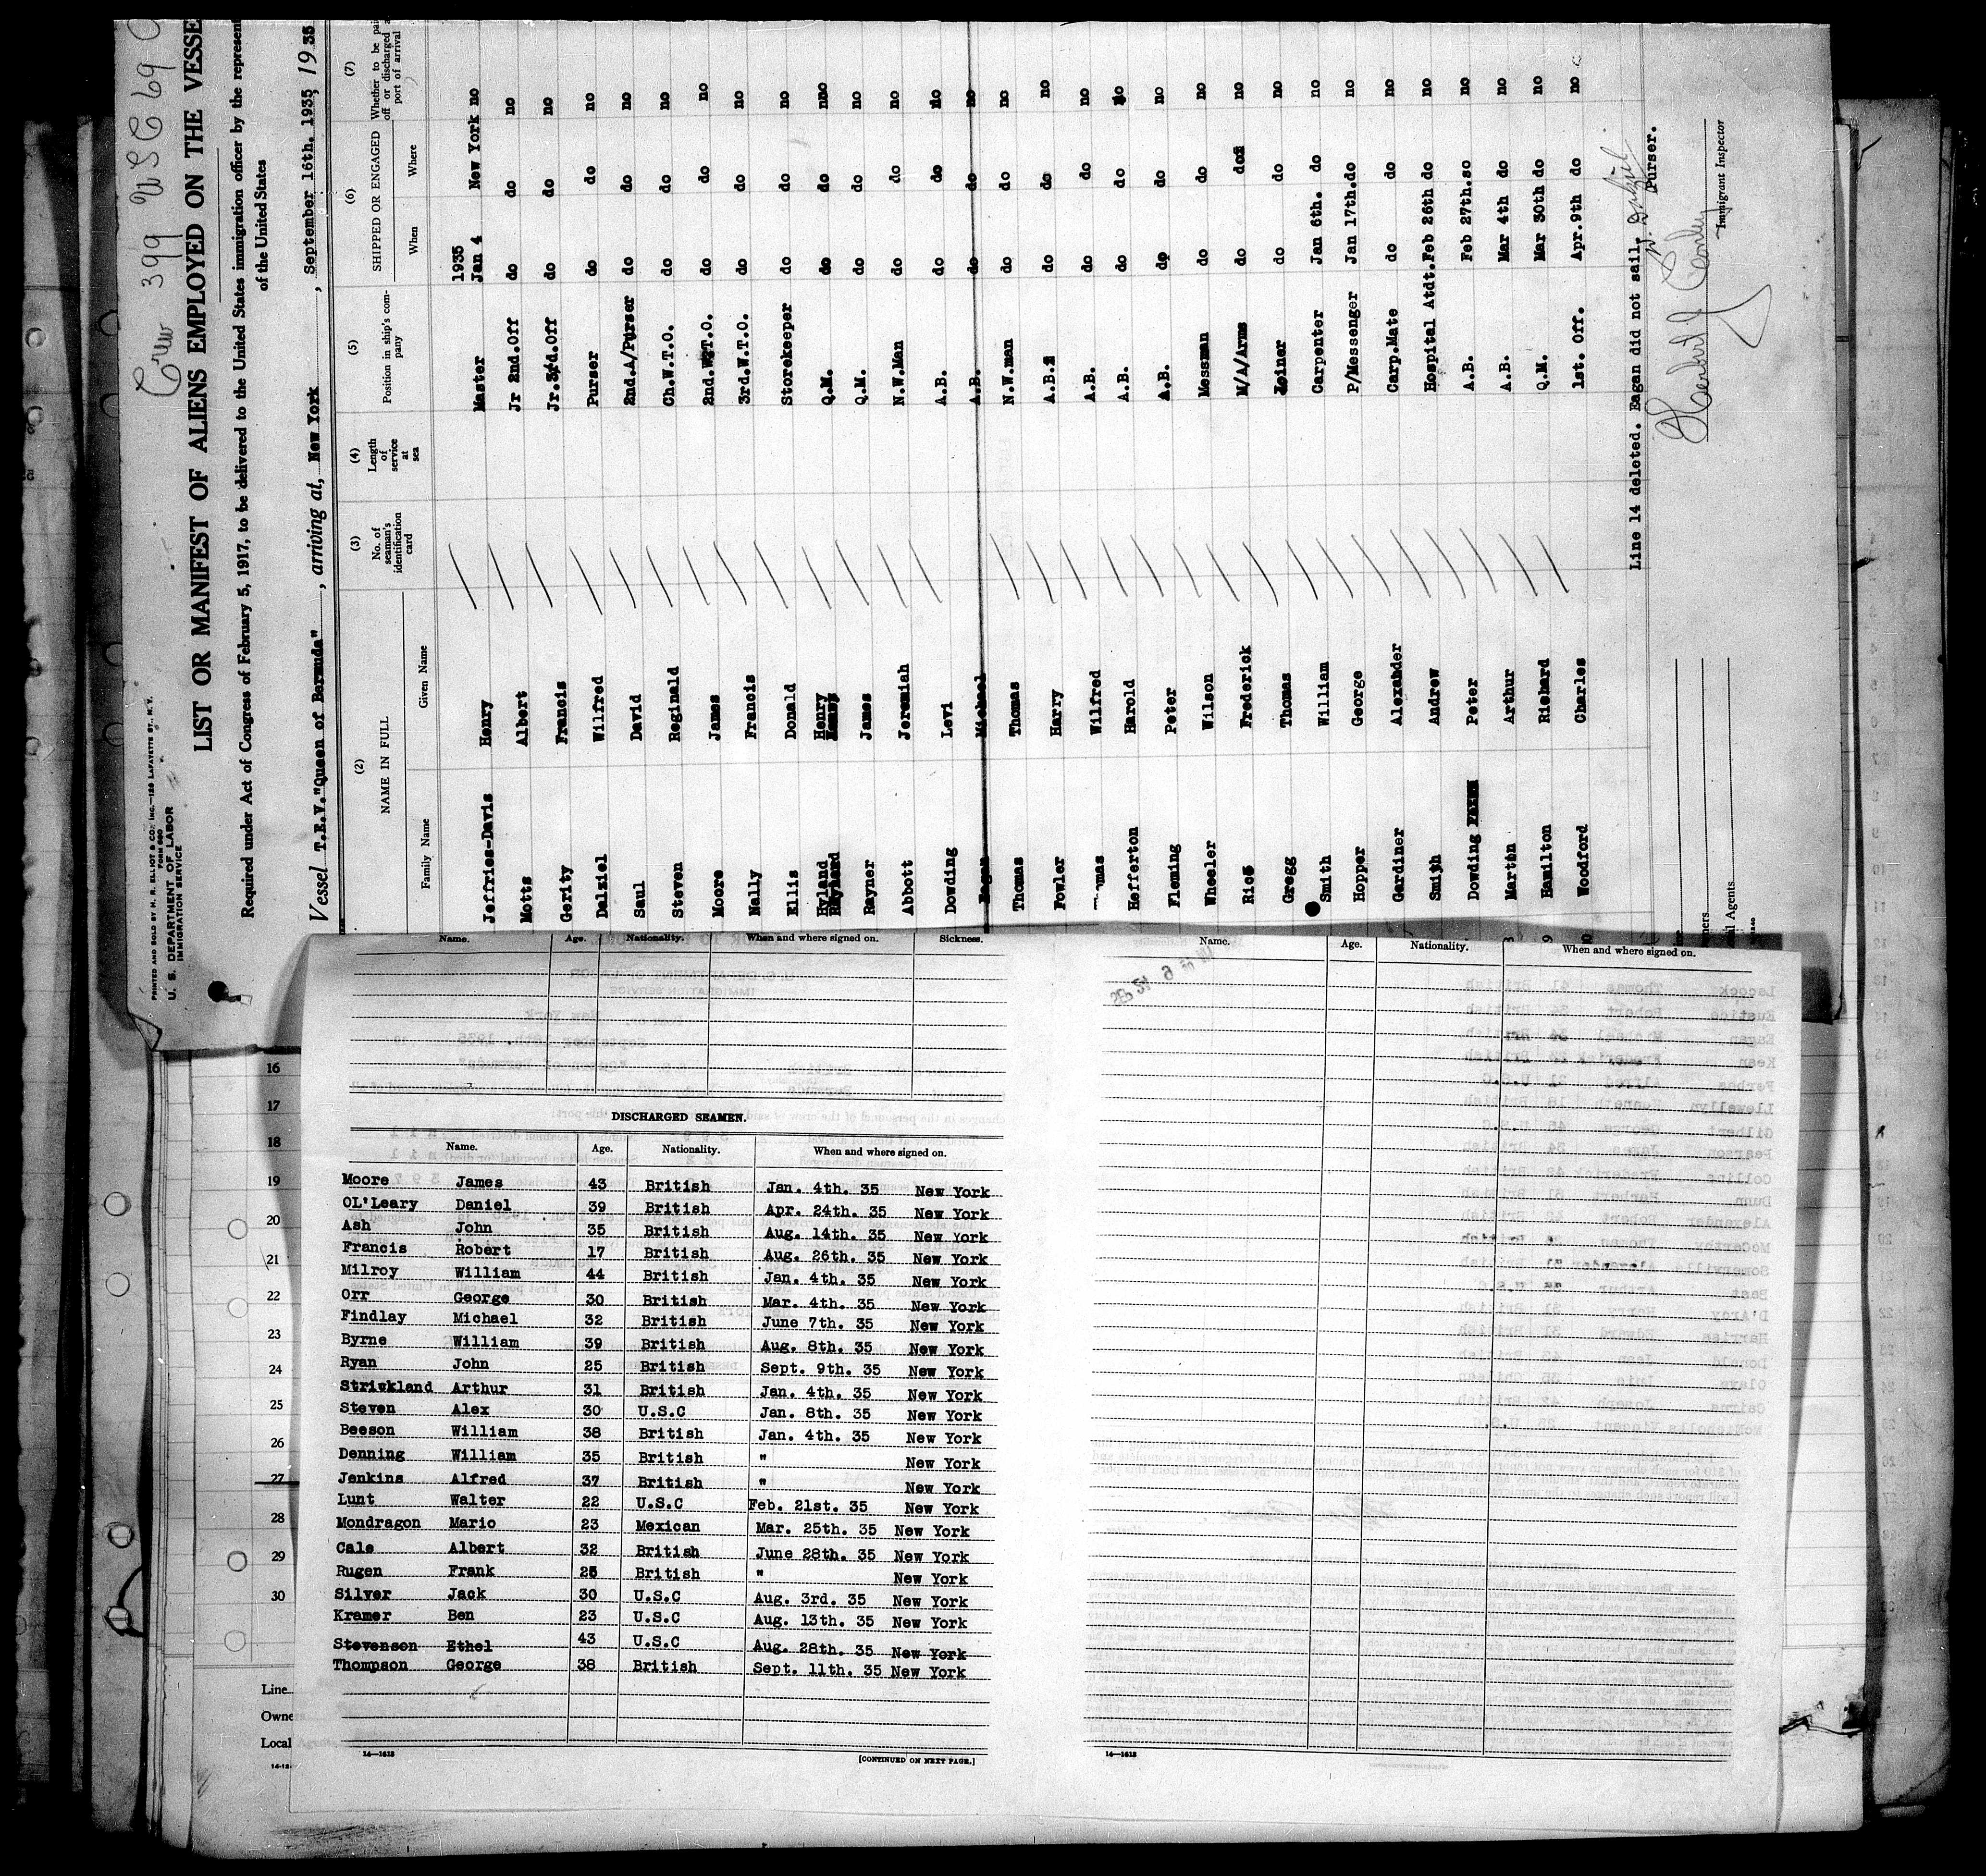 Crew 399 USC 69
PRINTED AND SOLD BY M. R. ELLIOT & CO. INC.—129 LAFAYETTE ST., N.Y.
FORM 680
U. S. DEPARTMENT OF LABOR
IMMIGRATION SERVICE
LIST OR MANIFEST OF ALIENS EMPLOYED ON THE VESSE
Required under Act of Congress of February 5, 1917, to be delivered to the United States immigration officer by the represent
of the United States
Vessel T.E.V."Queen of Bermuda", arriving at, New York, September 16th. 1935, 1935
(2) (3) (4) (5) (6) (7)
NAME IN FULL No. of seaman's identification card Length of service at sea Position in ship's company SHIPPED OR ENGAGED Whether to be pai off or discharged a port of arrival
Family Name Given Name When Where
1935
Jeffries-Davis Henry Master Jan 4 New York no
Motts Albert Jr 2nd.Off do do no
Gerity Francis Jr.3rd.Off do do no
Dalziel Wilfred Purser do do no
Saul David 2nd.A/Purser do do no
Steven Reginald Ch.W.T.O. do do no
Moore James 2nd.W.T.O. do do no
Nally Francis 3rd.W.T.O. do do no
Ellis Donald Storekeeper do do no
Hyland Henry Q.M. do do no
Rayner James Q.M. do do no
Abbott Jeremiah N.W.Man do do no
Dowding Levi A.B. do do no
Eagan Michael A.B. do do no
Thomas Thomas N.W.man do do no
Fowler Harry A.B. do do no
mas Wilfred A.B. do do no
Hefferton Harold A.B. do do no
Fleming Peter A.B. do do no
Wheeler Wilson Messman do do no
Rice Frederick M/A/Arms do do no
Gregg Thomas Loiner do do no
Smith William Carpenter Jan 6th. do no
Hopper George P/Messenger Jan 17th.do no
Gardiner Alexander Carp.Mate do do no
Smith Andrew Hospital Atdt.Feb 26th do no
Dowding Peter A.B. Feb 27th.so no
Martin Arthur A.B. Mar 4th do no
Hamilton Richard Q.M. Mar 30th do no
Woodford Charles 1st. Off. Apr.9th do no
Line 14 deleted. Eagan did not sail.
W. Dalziel
Purser.
Immigrant Inspector
Name. Age. Nationality. When and where signed on. Sickness.
DISCHARGED SEAMEN.
Name. Age. Nationality. When and where signed on.
Moore James 43 British Jan. 4th. 35 New York
OL'Leary Daniel 39 British Apr. 24th. 35 New York
Ash John 35 British Aug. 14th. 35 New York
Francis Robert 17 British Aug. 26th. 35 New York
Milroy William 44 British Jan. 4th. 35 New York
Orr George 30 British Mar. 4th. 35 New York
Findlay Michael 32 British June 7th. 35 New York
Byrne William 39 British Aug. 8th. 35 New York
Ryan John 25 British Sept. 9th. 35 New York
Strickland Arthur 31 British Jan. 4th. 35 New York
Steven Alex 30 U.S.C Jan. 8th. 35 New York
Beeson William 38 British Jan. 4th. 35 New York
Denning William 35 British " New York
Jenkins Alfred 37 British " New York
Lunt Walter 22 U.S.C Feb. 21st. 35 New York
Mondragon Mario 23 Mexican Mar. 25th. 35 New York
Cale Albert 32 British June 28th. 35 New York
Rugen Frank 25 British " New York
Silver Jack 30 U.S.C Aug. 3rd. 35 New York
Kramer Ben 23 U.S.C Aug. 13th. 35 New York
Stevenson Ethel 43 U.S.C Aug. 28th. 35 New York
Thompson George 38 British Sept. 11th. 35 New York
14—1613
[CONTINUED ON NEXT PAGE.]
Name. Age. Nationality. When and where signed on.
14—1613
16
17
18
19
20
21
22
23
24
25
26
27
28
29
30
Line
Owne
Local